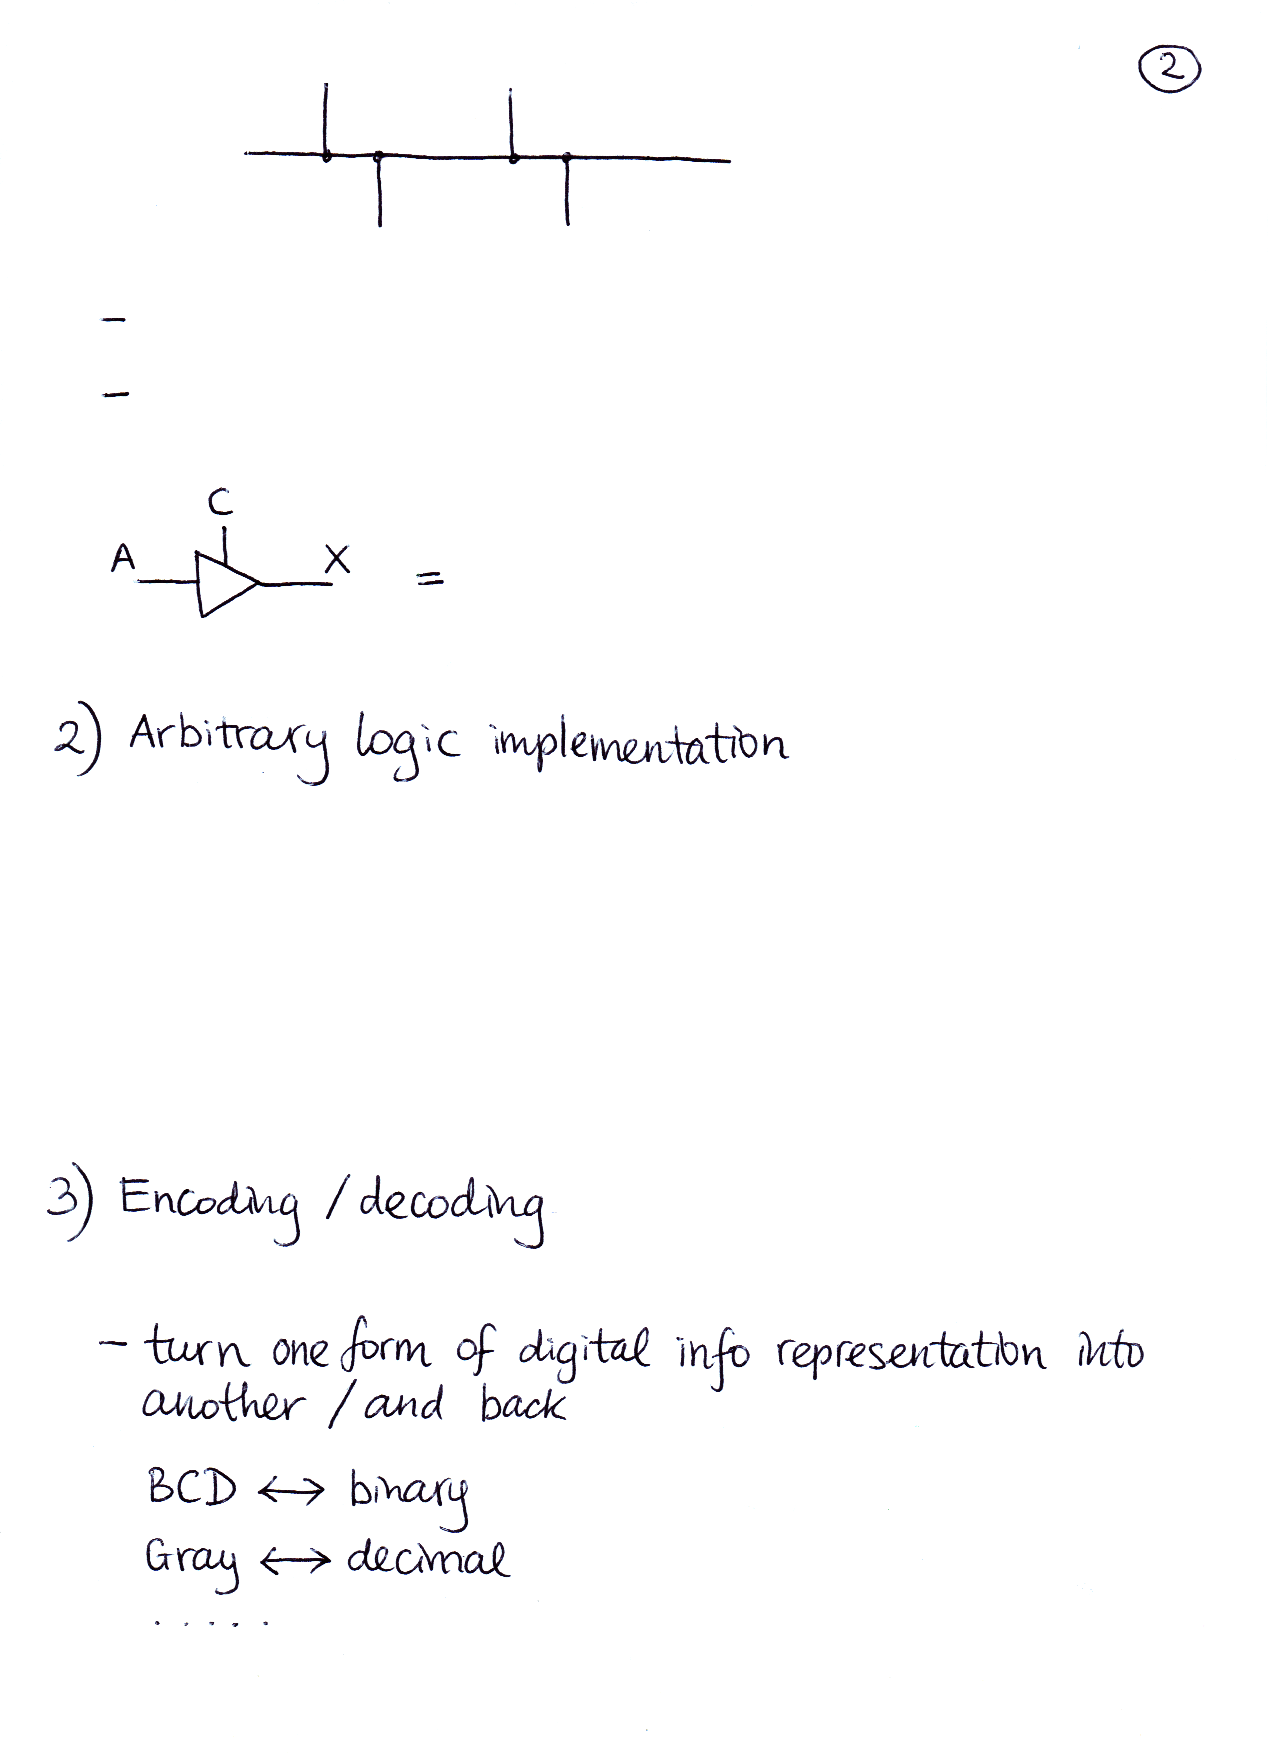 2
-
-
C
A X =
2) Arbitrary logic implementation
3) Encoding / decoding
- turn one form of digital info representation into
another / and back
BCD ↔ binary
Gray ↔ decimal
.....